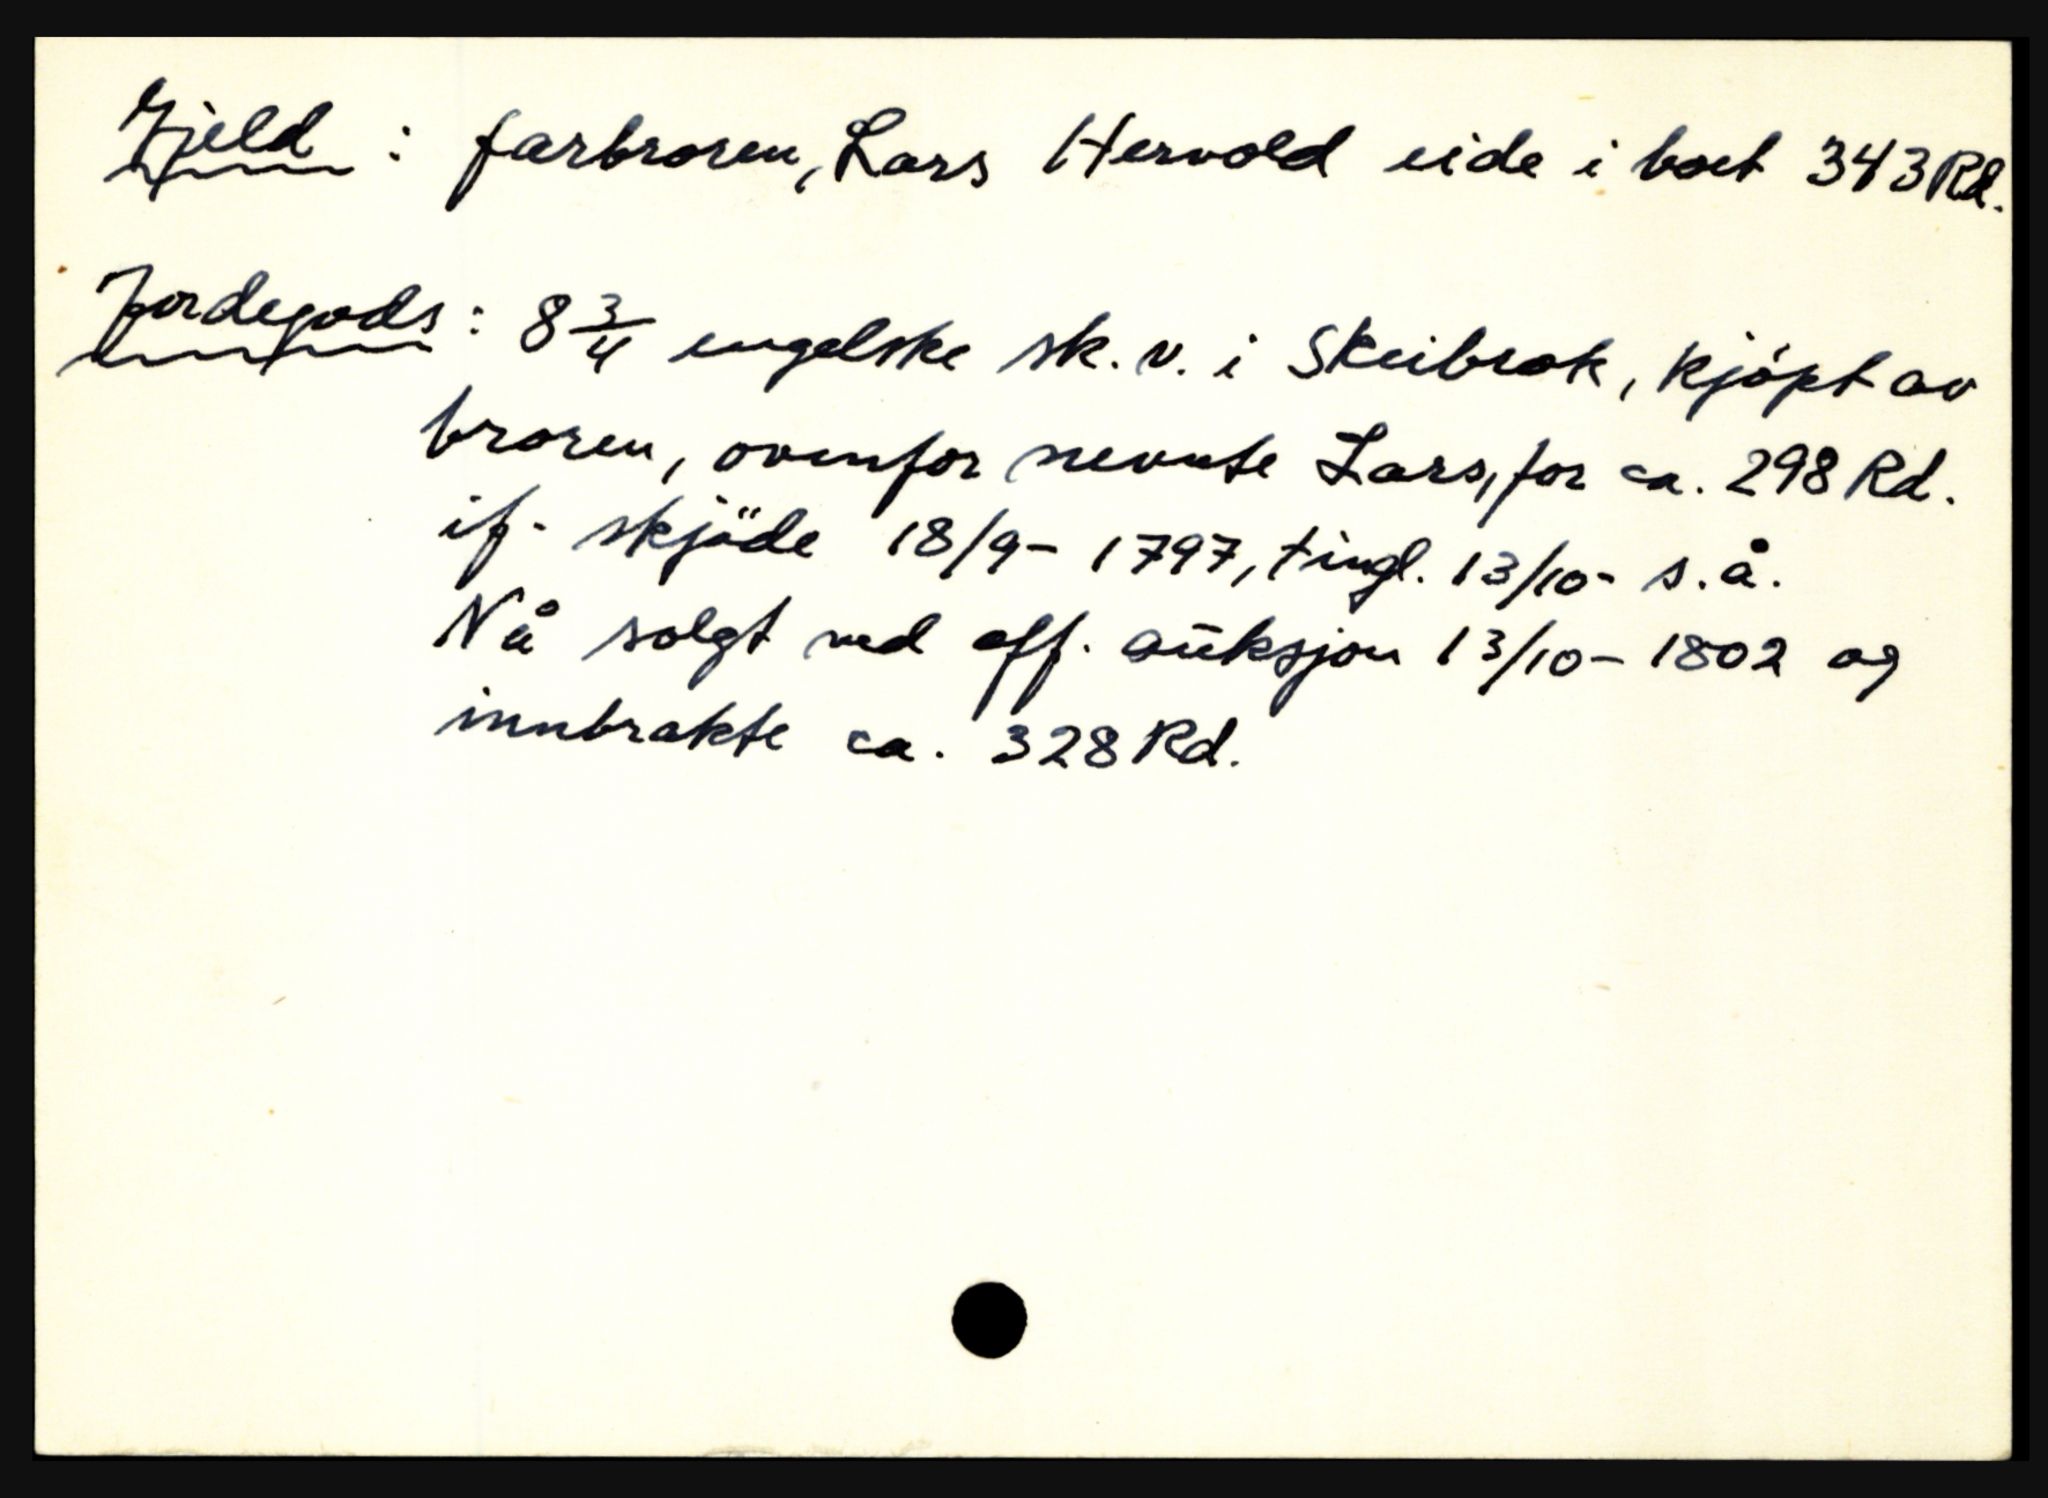 Gjeld : farbroren, Lars Hervold eide i boet 343 Rd.
Jordegods : 8 3/4 engelske sk. v. i Skeibrok, kjöpt av
broren, ovenfor nevnte Lars, for ca. 298 Rd.
if. skjöde 18/9 - 1797, tingl. 13/10 - s. å.
Nå solgt ved off. auksjon 13/10 - 1802 og
innbrakte ca. 328 Rd.